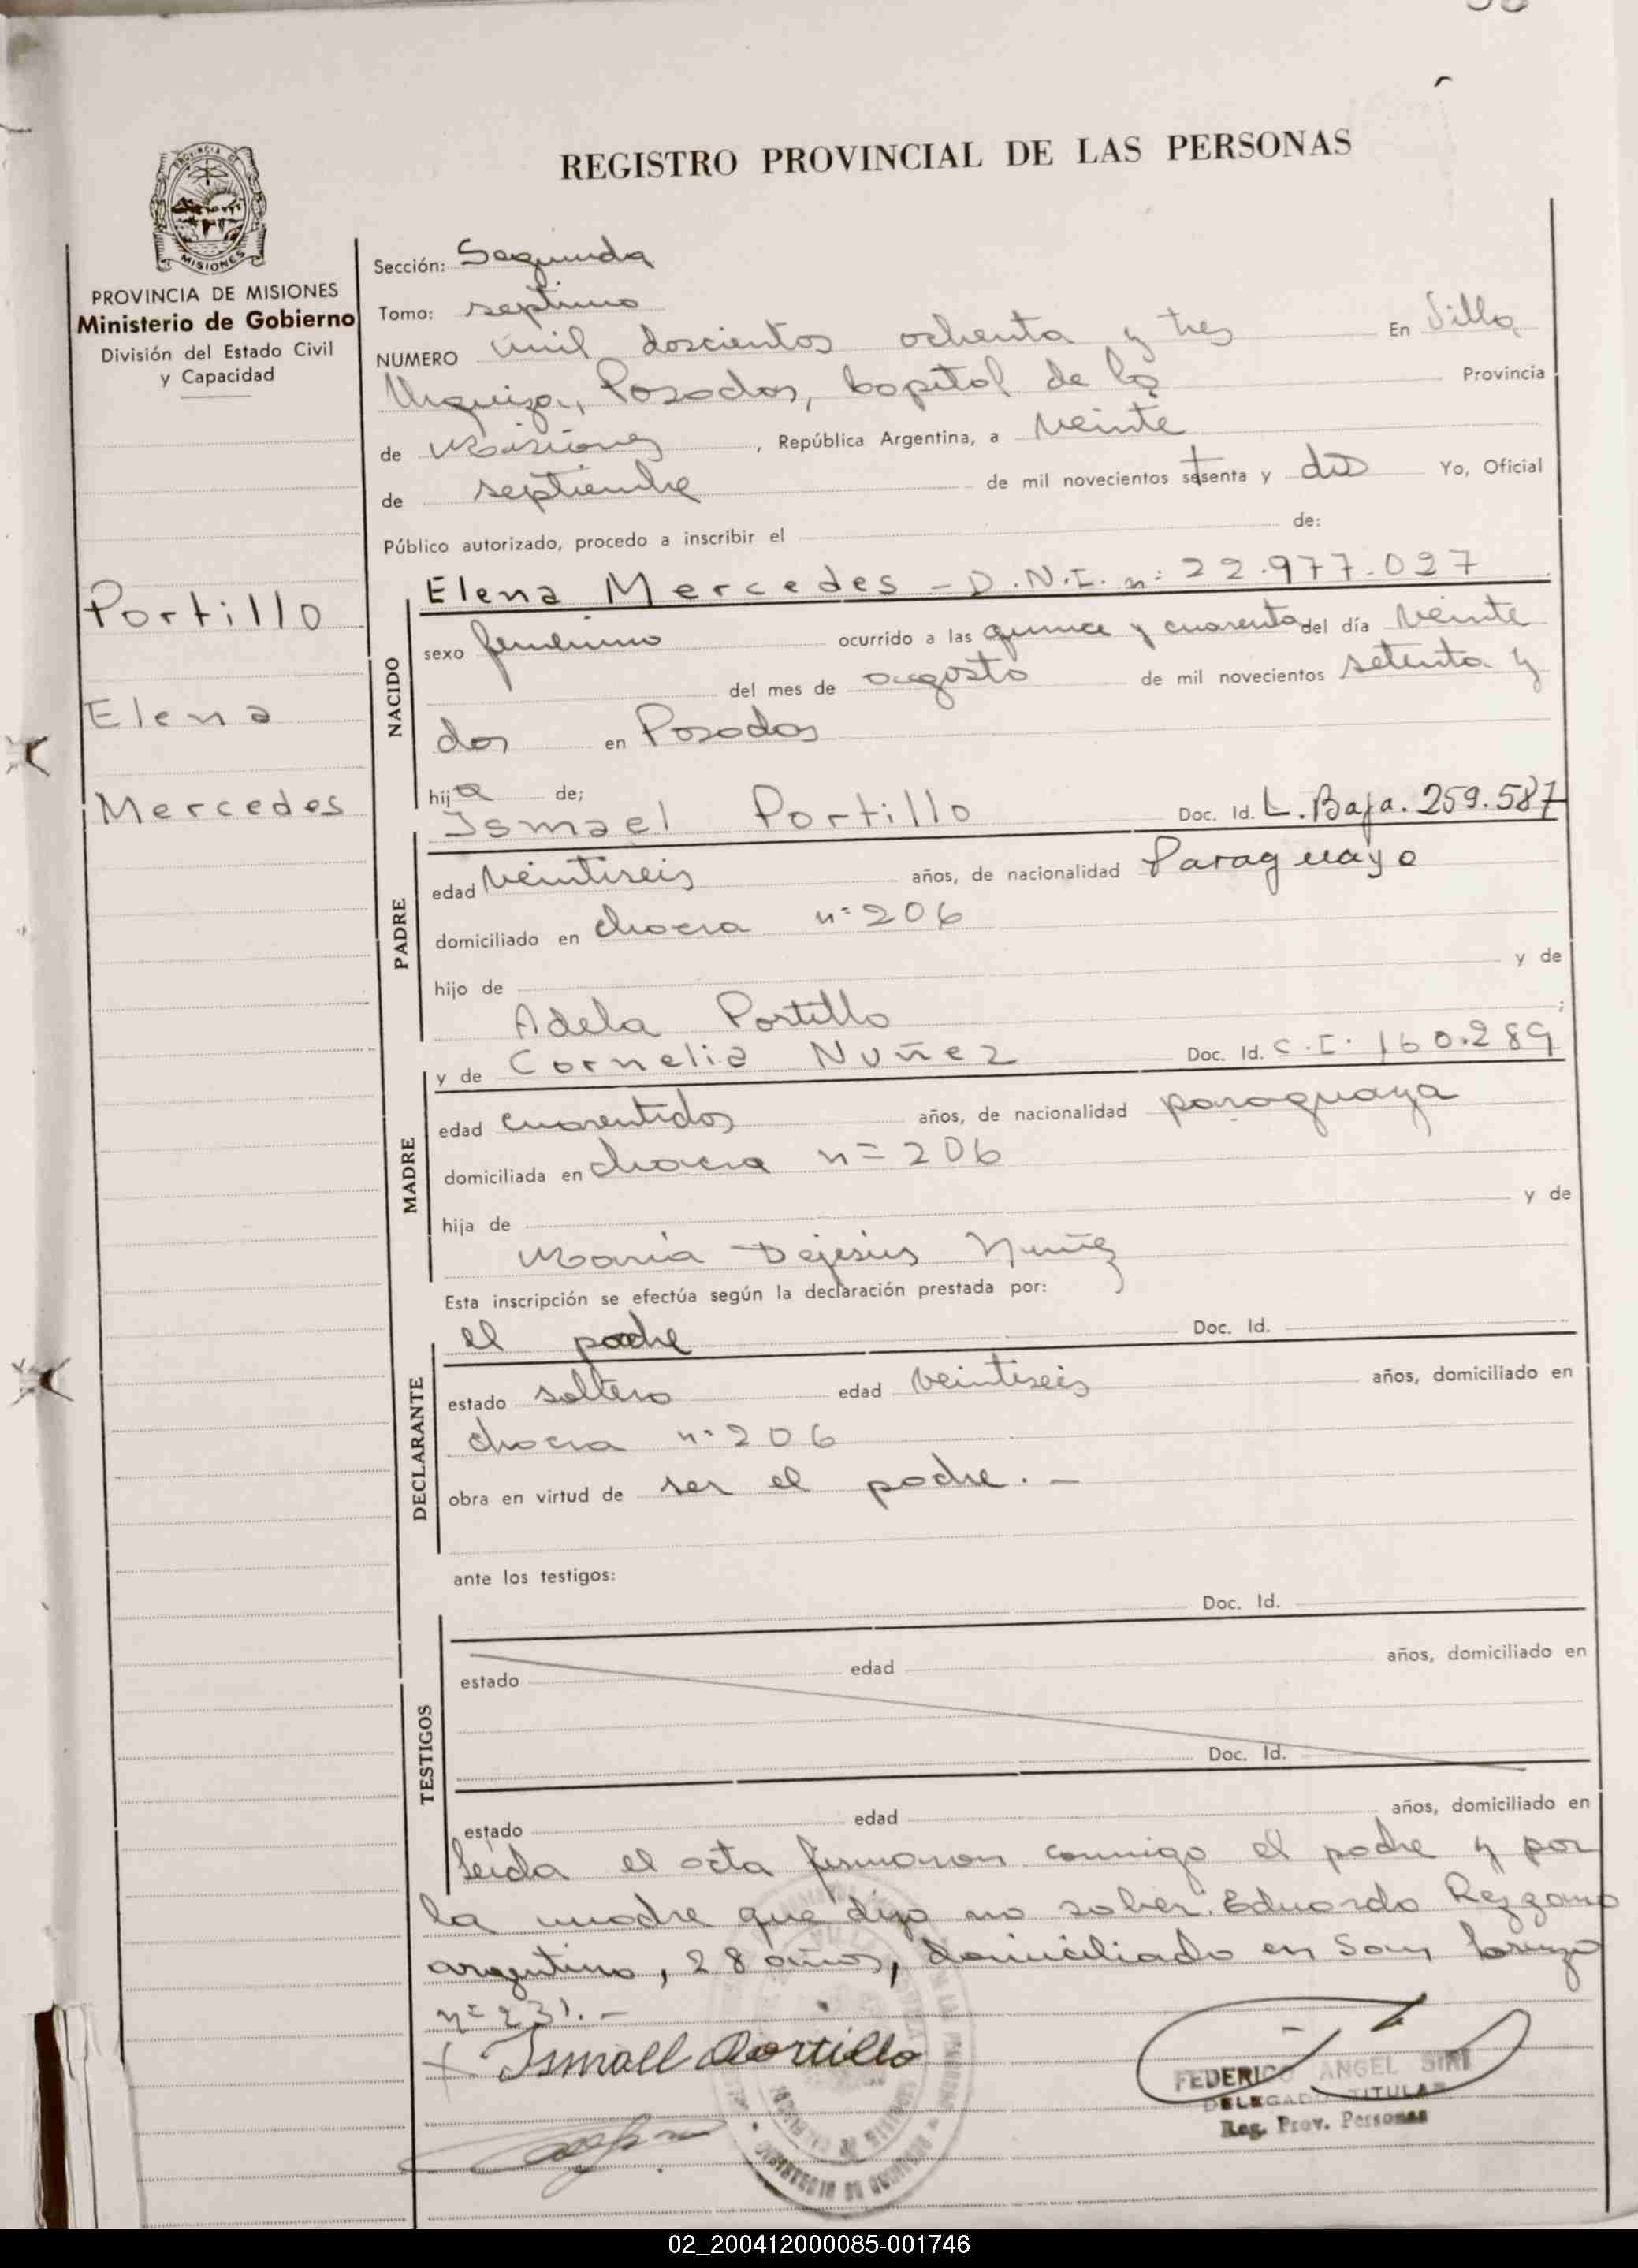 REGISTRO PROVINCIAL DE LAS PERSONAS
MISIONES
PROVINCIA DE MISIONES
Ministerio de Gobierno
División del Estado Civil
y Capacidad
Portillo
Elena
Mercedes
Sección: Segunda
Tomo: septimo
NUMERO mil doscientos ochenta y tres En Villa
Urquiza, Posadas, Capital de la Provincia
de Misiones, República Argentina, a veinte
de septiembre de mil novecientos setenta y dos Yo, Oficial
Público autorizado, procedo a inscribir el de:
NACIDO
Elena Mercedes - D.N.I. n: 22.977.027
sexo femenino ocurrido a las quince y cuarenta del día veinte
del mes de agosto de mil novecientos setenta y
dos en Posadas
hija de;
PADRE
Ismael Portillo Doc. Id. L. Baja. 259.587
edad veintiseis años, de nacionalidad Paraguayo
domiciliado en chacra n=206
hijo de y de
Adela Portillo ;
MADRE
y de Cornelia Nuñez Doc. Id. C.I. 160.289
edad cuarentidos años, de nacionalidad paraguaya
domiciliada en chacra n=206
hija de y de
María Dejesús Nuñez
Esta inscripción se efectúa según la declaración prestada por:
DECLARANTE
el padre Doc. Id.
estado soltero edad veintiseis años, domiciliado en
chacra n=206
obra en virtud de ser el padre.-
ante los testigos:
TESTIGOS
Doc. Id.
estado edad años, domiciliado en
Doc. Id.
estado edad años, domiciliado en
leida el acta firmaron conmigo el padre y por
la madre que dijo no saber: Eduardo Rezzano
argentino, 28 años, domiciliado en San Lorenzo
n=231.-
Ismael Portillo
FEDERICO ANGEL SIRI
DELEGADO TITULAR
Reg. Prov. Personas
02_200412000085-001746